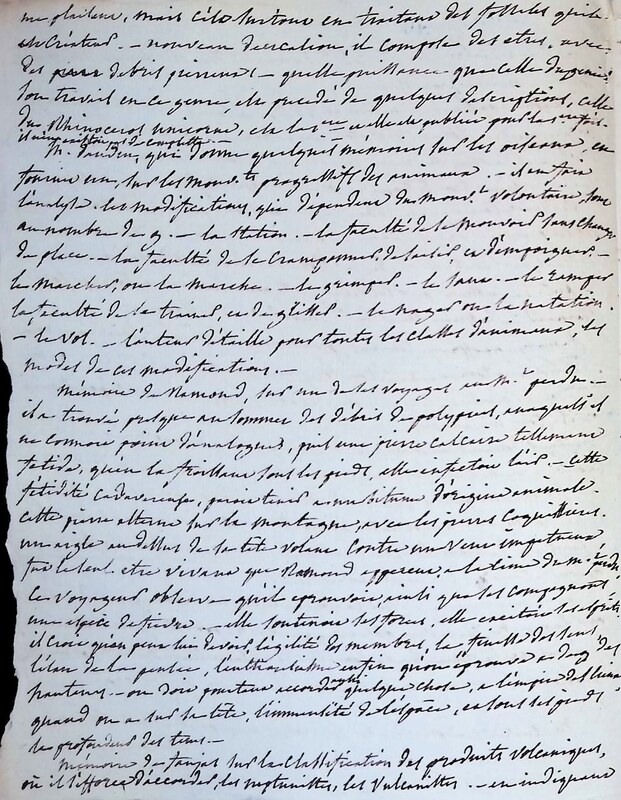 me plaisent, mais c'est surtout en traitant des fossiles qu'il
est créateur. – nouveau deucalion, il compose des etres, avec
des debris pierreux – quelle puissance que celle du génie!
son travail en ce genre, est précédé de quelques descriptions, celle
du Rhinoceros unicorne, est la 1ere celle publié pour la 1ere fois.
il n'en existoit pas de complette. –
M. Daudin, qui donne quelques mémoires sur les oiseaux, en
fournit un, sur les mouv.ts progressifs des animaux. – il en fait
l'analyse. les modifications, qui dépendent du mouv.t volontaire, sont
au nombre de 9. – la station. – la faculté de se mouvoir sans changer
de place. – la faculté de se cramponner, de saisir, et d'empoigner. –
le marcher, ou la marche. – le grimper. – le saut. – le ramper
la faculté de se trainer, et de glisser. – le nager ou la natation.
– le vol. – l'auteur détaille pour toutes les classes d'animaux, les
modes de ces modifications. –
Mémoire de Ramond, sur un de ses voyages au M.t perdu. –
il a trouvé presque au sommet des débris de polypiers, auxquels il
ne connoit point d'analogues, puis une pierre calcaire tellement
fétide, qu'en la froissant sous les pieds, elle infectoit l'air. – cette
fétidité cadavereuse, paroit tenir a un bitume d'origine animale.
cette pierre alterne sur la montagne, avec les pierres coquillieres.
un aigle au dessus de sa tête volant contre un vent impétueux,
fut le seul etre vivant que Ramond apperçut, a la cime du M.t perdu
le voyageur observe qu'il eprouvoit, ainsi que ses compagnons
une espèce de fievre. – elle soutenoit ses forces, elle excitoit ses esprits
il croit qu'on peut lui devoir, l'agilité des membres, la finesse des sens,
l'élan de la pensée, l'enthousiasme enfin qu'on eprouve a de
hauteurs – on doit pourtant accorder aussi quelque chose, a l'empire des lieux
quand on a sur sa tête, l'immensité de l'espace, et sous les pieds
la profondeur des tems. –
Mémoire de faujas sur la classification des produits volcaniques,
où il s'efforce d'accorder, les neptunistes, les vulcanistes. – en indiquant